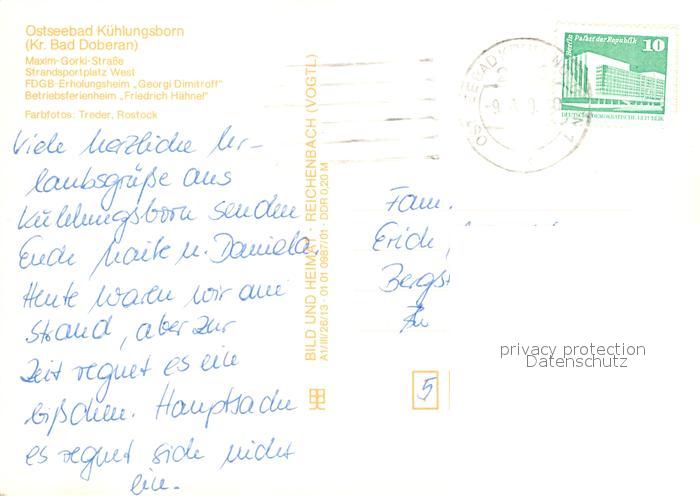 Ostseebad Kühlungsborn
(Kr. Bad Doberan)
Maxim-Gorki-Straße
Strandsportplatz West
FDGB-Erholungsheim „Georgi Dimitroff"
Betriebsferienheim „Friedrich Hähnel"
Farbfotos: Treder, Rostock
Viele herzliche Ur-
laubsgrüße aus
Kühlungsborn senden
Euch Maik u. Daniela.
Heute waren wir am
Strand, aber zur
Zeit regnet es ein
bißchen. Hauptsache
es regnet sich nicht
ein.
BILD UND HEIMAT · REICHENBACH (VOGTL)
A1/III/26/13 · 01 01 0987/01 · DDR 0,20 M
Berlin Palast der Republik
10
DEUTSCHE DEMOKRATISCHE REPUBLIK
Fam.
Erich
Bergst
5
privacy protection
Datenschutz